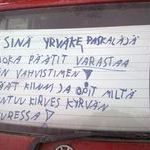 SINÄ YRVÄKE PASKALÄJÄ
JOKA PÄÄTIT VARASTAA
ÄN VAHVISTIMEN
ÄÄT KIINNI JA MILTÄ
NTUU KIRVES KYRVÄN
URESSA